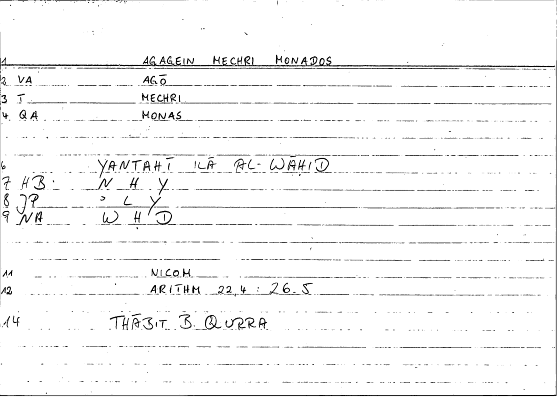 1 AGAGEIN MECHRI MONADOS
2 VA AGŌ
3 T MECHRI
4 QA MONAS
6 YANTAHĪ ILĀ AL-WĀḤID
7 HB N H Y
8 JP ʾ L Y
9 NA W Ḥ D
11 NICOM
12 ARITHM 22,4 : 26.5
14 THĀBIT B. QURRA